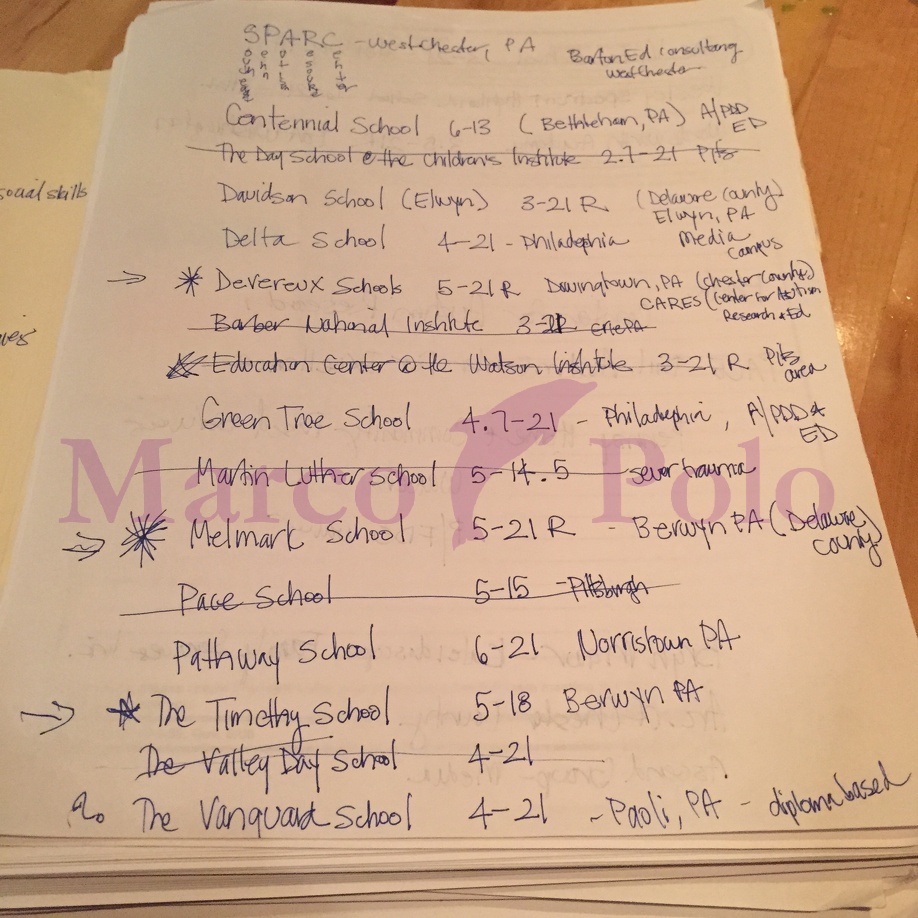 SPARC - West Chester, PA
Barton Ed consulting
west Chester
Centennial School 6-13 (Bethleham, PA) A/PDD
ED
The Day School @ the Children's Institute 2.7-21 Pitts
Davidson School (Elwyn) 3-21 R (Delaware County)
Elwyn, PA
Delta School 4-21 - Philadelphia Media
Campus
→ * Devereux Schools 5-21 R Downingtown, PA (Chester County)
CARES (Center for Autism
Research & Ed
Barber National Institute 3-21 Erie PA
Education Center @ the Watson Institute 3-21 R Pitts
area
Green Tree School 4.7-21 - Philadelphia, A/PDD &
ED
Martin Luther School 5-14.5 sever trauma
→ * Melmark School 5-21 R - Berwyn PA (Delaware
county)
Pace School 5-15 - Pittsburgh
Pathway School 6-21 Norristown PA
→ * The Timothy School 5-18 Berwyn PA
The Valley Day School 4-21
The Vanguard School 4-21 - Paoli, PA - diploma based
social skills
Marco Polo